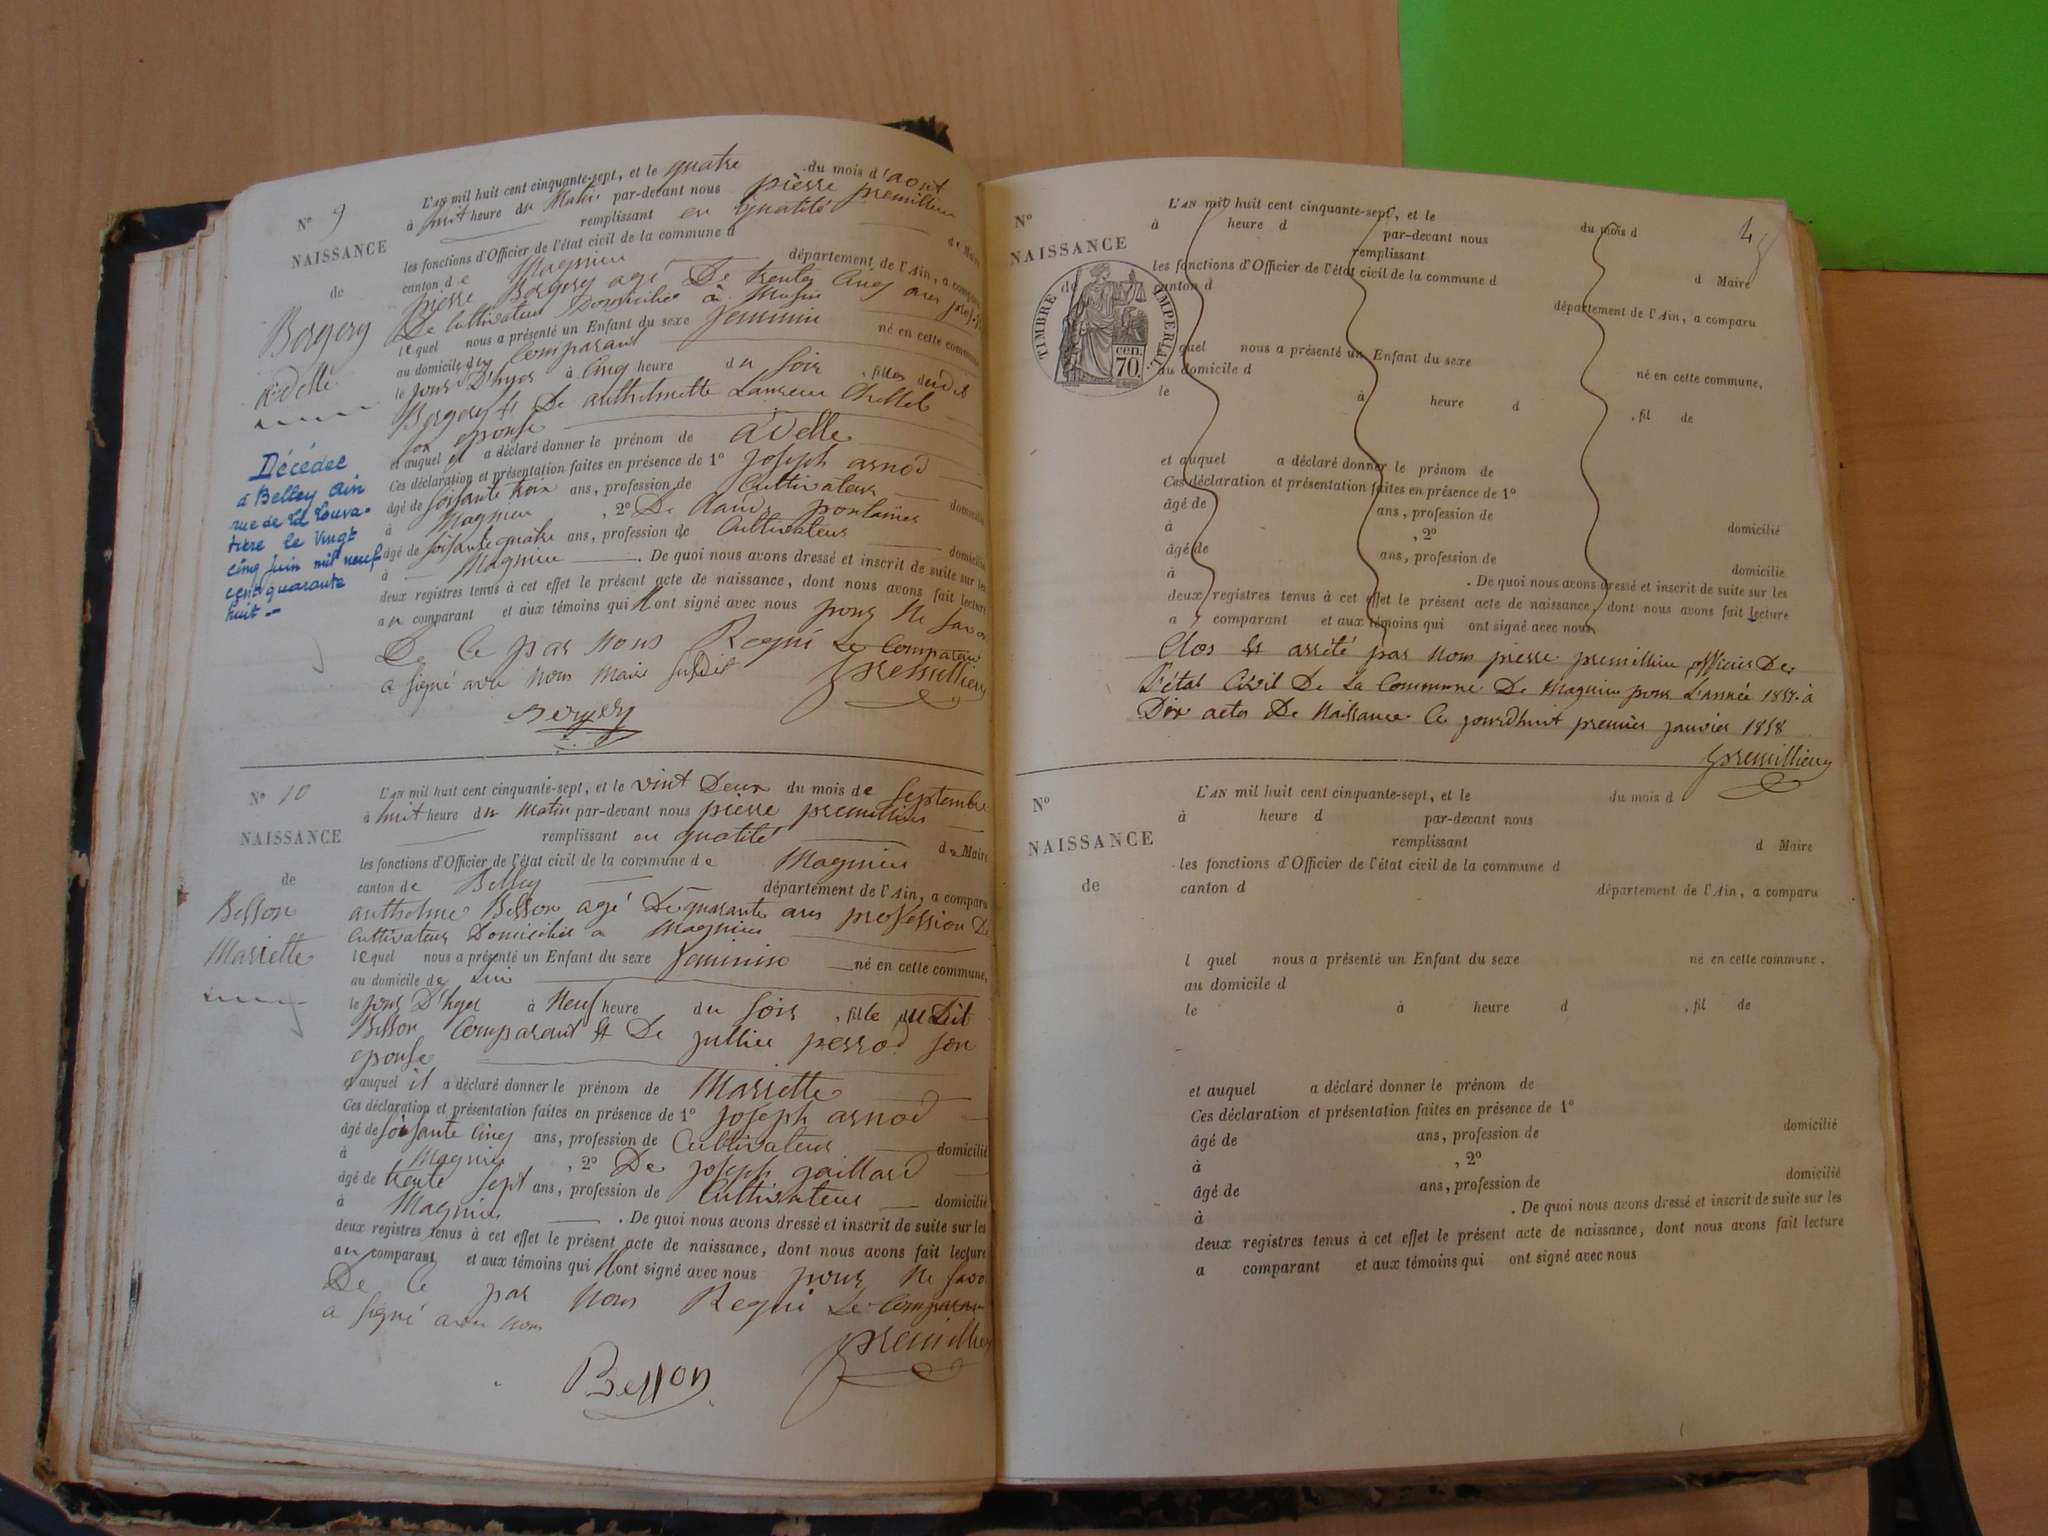 N° 9
NAISSANCE
de
Bergery
adelle
Décédée
à Belley Ain
rue de la Louva-
tière le Vingt
cinq juin mil neuf
cent quarante
huit -
L'AN mil huit cent cinquante-sept, et le quatre du mois d'aout
à huit heure du Matin par-devant nous pierre premillieu
remplissant en qualité de Maire
les fonctions d'Officier de l'état civil de la commune d
canton de Magnieu département de l'Ain, a comparu
pierre Bergery agé De trente cinq ans
De Cultivateur Domicilié à Magnieu
lequel nous a présenté un Enfant du sexe feminin né en cette commune
au domicile du Comparant
le jour D'hyer à Cinq heure du soir , fille dudit
Bergery et De anthelmette
son epouse
et auquel il a déclaré donner le prénom de adelle
Ces déclaration et présentation faites en présence de 1° joseph arnod
âgé de soisante trois ans, profession de Cultivateur domicilié
à Magnieu , 2° De
âgé de soisante quatre ans, profession de Cultivateur domicilié
à Magnieu . De quoi nous avons dressé et inscrit de suite sur les
deux registres tenus à cet effet le présent acte de naissance, dont nous avons fait lecture
au comparant et aux témoins qui n'ont signé avec nous pour ne savoir
De ce par nous Requi Le Comparant
a signé avec nous Maire susdit
premillieu
Bergery
N° 10
NAISSANCE
de
Besson
Mariette
L'AN mil huit cent cinquante-sept, et le vint Deux du mois de Septembre
à huit heure du Matin par-devant nous pierre premillieu
remplissant en qualité de Maire
les fonctions d'Officier de l'état civil de la commune de Magnieu
canton de Belley département de l'Ain, a comparu
anthelme Besson agé De quarante ans profession De
Cultivateur Domicilié a Magnieu
lequel nous a présenté un Enfant du sexe feminin né en cette commune,
au domicile de lui
le jour D'hyer à Neuf heure du soir , fille du Dit
Besson Comparant et De jullie perrod son
epouse
et auquel il a déclaré donner le prénom de Mariette
Ces déclaration et présentation faites en présence de 1° joseph arnod
âgé de soisante cinq ans, profession de Cultivateur domicilié
à Magnieu , 2° De joseph gaillard
âgé de trente sept ans, profession de Cultivateur domicilié
à Magnieu . De quoi nous avons dressé et inscrit de suite sur les
deux registres tenus à cet effet le présent acte de naissance, dont nous avons fait lecture
au comparant et aux témoins qui n'ont signé avec nous pour ne savoir
De ce par nous Requi Le Comparant
a signé avec nous
premillieu
Besson
N°
NAISSANCE
de
TIMBRE IMPERIAL
cen. 70.
L'AN mil huit cent cinquante-sept, et le du mois d
à heure d par-devant nous
remplissant d Maire
les fonctions d'Officier de l'état civil de la commune d
canton d département de l'Ain, a comparu
quel nous a présenté un Enfant du sexe né en cette commune,
au domicile d
le à heure d , fil de
et auquel a déclaré donner le prénom de
Ces déclaration et présentation faites en présence de 1°
âgé de ans, profession de domicilié
à , 2°
âgé de ans, profession de domicilié
à . De quoi nous avons dressé et inscrit de suite sur les
deux registres tenus à cet effet le présent acte de naissance, dont nous avons fait lecture
a comparant et aux témoins qui ont signé avec nous
Clos et arrêté par nous pierre premillieu officier De
L'état Civil De La Commune De Magnieu pour L'année 1857 à
Dix actes De Naissance Ce jourdhuit premier janvier 1858
premillieu
N°
NAISSANCE
de
L'AN mil huit cent cinquante-sept, et le du mois d
à heure d par-devant nous
remplissant d Maire
les fonctions d'Officier de l'état civil de la commune d
canton d département de l'Ain, a comparu
l quel nous a présenté un Enfant du sexe né en cette commune,
au domicile d
le à heure d , fil de
et auquel a déclaré donner le prénom de
Ces déclaration et présentation faites en présence de 1°
âgé de ans, profession de domicilié
à , 2°
âgé de ans, profession de domicilié
à . De quoi nous avons dressé et inscrit de suite sur les
deux registres tenus à cet effet le présent acte de naissance, dont nous avons fait lecture
a comparant et aux témoins qui ont signé avec nous